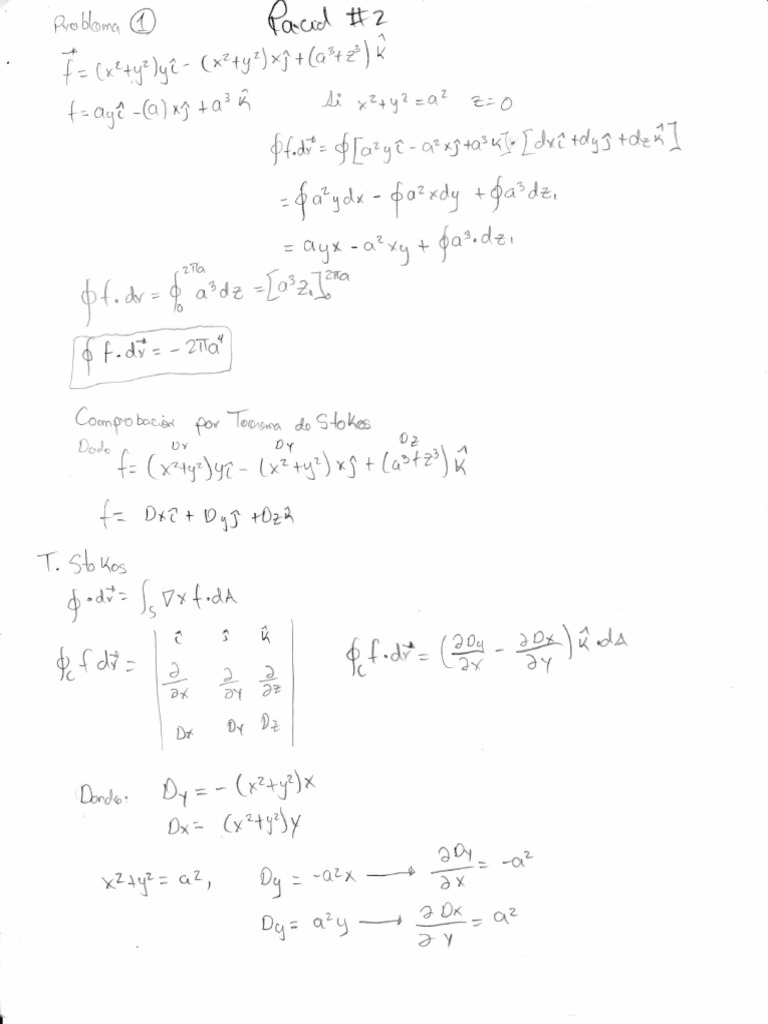 Problema ① Parcial #2
f⃗ = (x²+y²)yî - (x²+y²)xĵ + (a³+z³)k̂
f = ayî - (a)xĵ + a³k̂ Si x²+y² = a² z = 0
∮f.dr⃗ = ∮[a²yî - a²xĵ + a³k]·[dxî + dyĵ + dzk̂]
= ∮a²ydx - ∮a²xdy + ∮a³dz,
= ayx - a²xy + ∮a³·dz,
∮f.dr = ∮₀^2πa a³dz = [a³z,]₀^2πa
∮f.dr⃗ = -2πa⁴
Comprobación por Teorema de Stokes
Dado Dx Dy Dz
f = (x²+y²)yî - (x²+y²)xĵ + (a³+z³)k̂
f = Dxî + Dyĵ + Dzk̂
T. Stokes
∮·dr⃗ = ∫_S ∇x f.dA
∮_C f dr⃗ = | î ĵ k̂ |
| ∂/∂x ∂/∂y ∂/∂z |
| Dx Dy Dz |
∮_C f.dr⃗ = (∂Dy/∂x - ∂Dx/∂y) k̂.dA
Donde: Dy = -(x²+y²)x
Dx = (x²+y²)y
x²+y² = a², Dy = -a²x → ∂Dy/∂x = -a²
Dy = a²y → ∂Dx/∂y = a²